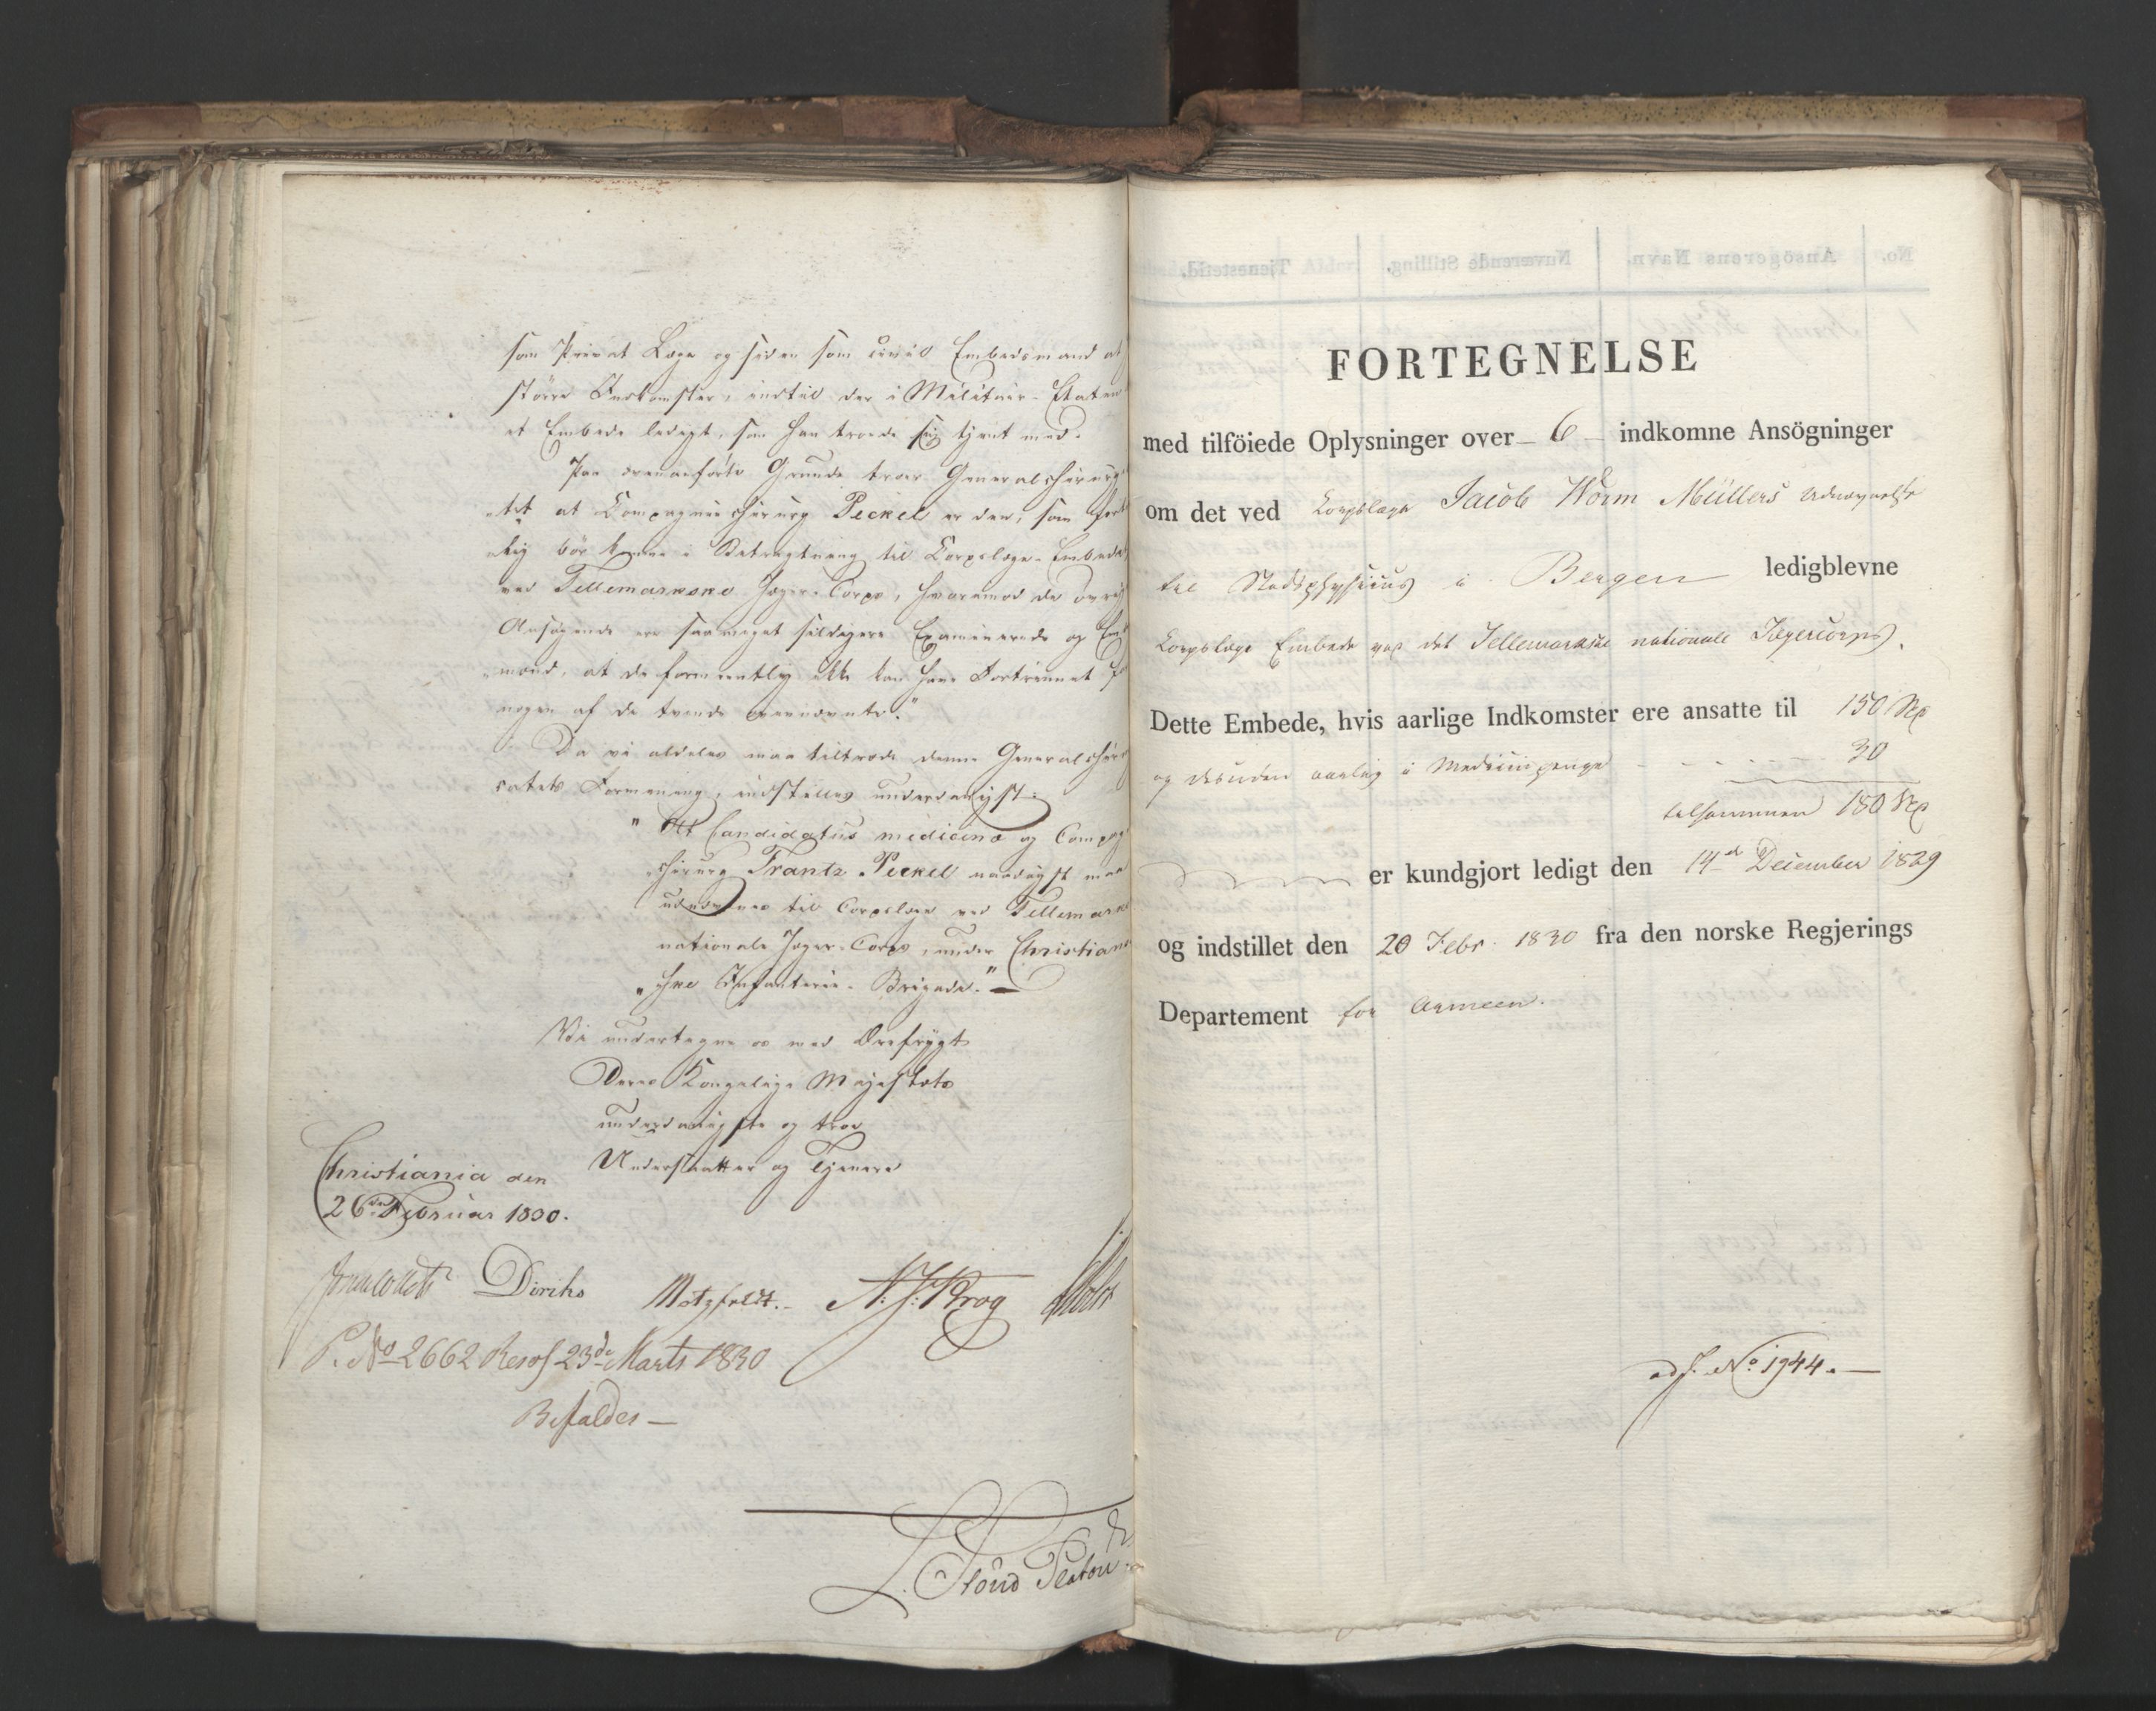 som Privat Læge og siden som civil Embedsmand at
større Indkomster, indtil der i Militair-Etaten
et Embede ledigt, som han troede sig tjent med.
Paa ovenanførte Grunde troer Generalchirurg
tet at Compagniechirurg Peckel er den, som for
lig bør komme i Betragtning til Corpslæge-Embedet
ved Tellemarkske Jæger-Corps, hvorimod de øvrige
Ansøgende ere saameget sildigere Examinerede og
mænd, at de formeentlig ikke kan have Fortrinnet
nogen af de tvende ovennævnte."
Da vi aldeles maa tiltræde denne Generalchirur
catets Formening, indstilles underdanigst:
" At Candidatus medicinæ og Compag
chirurg Frantz Peckel naadigst maa
udnævnes til Corpslæge ved Tellemark
nationale Jæger-Corps, under Christians
" ske Infanterie-Brigade."
Vi undertegne os med Ærefrygt
Deres Kongelige Majestæts
underdanigste og troe
Undersaatter og Tjenere
Christiania den
26de Februar 1830.
Diriks Motzfeldt. N. J. Krog
P. No 2662 Resol 23de Marts 1830
Bifaldes
FORTEGNELSE
med tilföiede Oplysninger over 6 indkomne Ansögninger
om det ved Korpslæge Jacob Worm Müllers Udnævnelse
til Stadsphysicus i Bergen ledigblevne
Korpslæge Embede ved det Tellemarkske nationale Jægercorps.
Dette Embede, hvis aarlige Indkomster ere ansatte til 150 Sp
og desuden aarlig i Medicinpenge - - - - - 30
tilsammen 180 Sp
er kundgjort ledigt den 14de December 1829
og indstillet den 20 Febr. 1830 fra den norske Regjerings
Departement for Armeen.
No 1944.